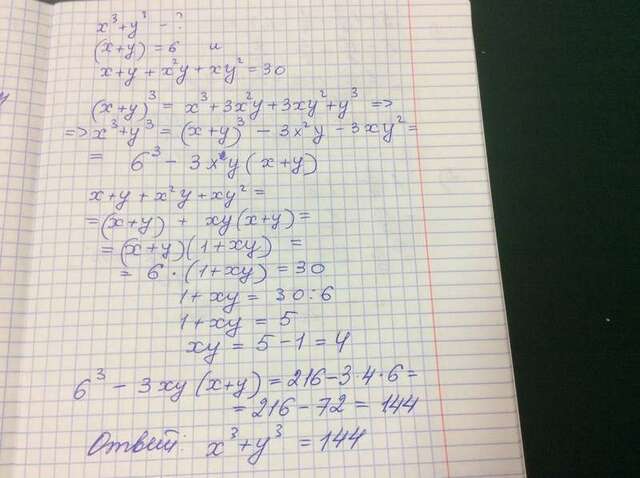 x³+y³ - ?
(x+y) = 6 и
x+y+x²y+xy²=30
(x+y)³ = x³+3x²y+3xy²+y³ =>
=> x³+y³ = (x+y)³ - 3x²y - 3xy² =
= 6³ - 3xy(x+y)
x+y+x²y+xy² =
=(x+y) + xy(x+y) =
= (x+y)(1+xy) =
= 6·(1+xy) = 30
1+xy = 30:6
1+xy = 5
xy = 5-1 = 4
6³ - 3xy(x+y) = 216-3·4·6=
= 216-72 = 144
Ответ: x³+y³ = 144